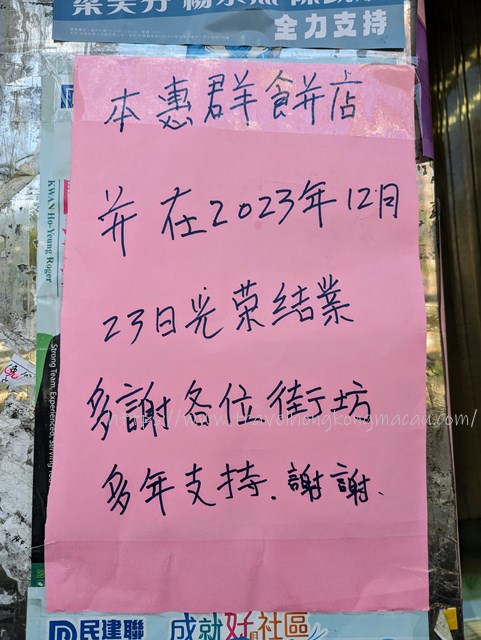 全力支持
本惠群餅店
并在2023年12月
23日光荣結業
多謝各位街坊
多年支持.謝謝、
KWAN Ho-Yeung Roger
Strong Team, Experienced, Serving
https://www.travelhongkongmacau.com/
民建聯
成就好社區